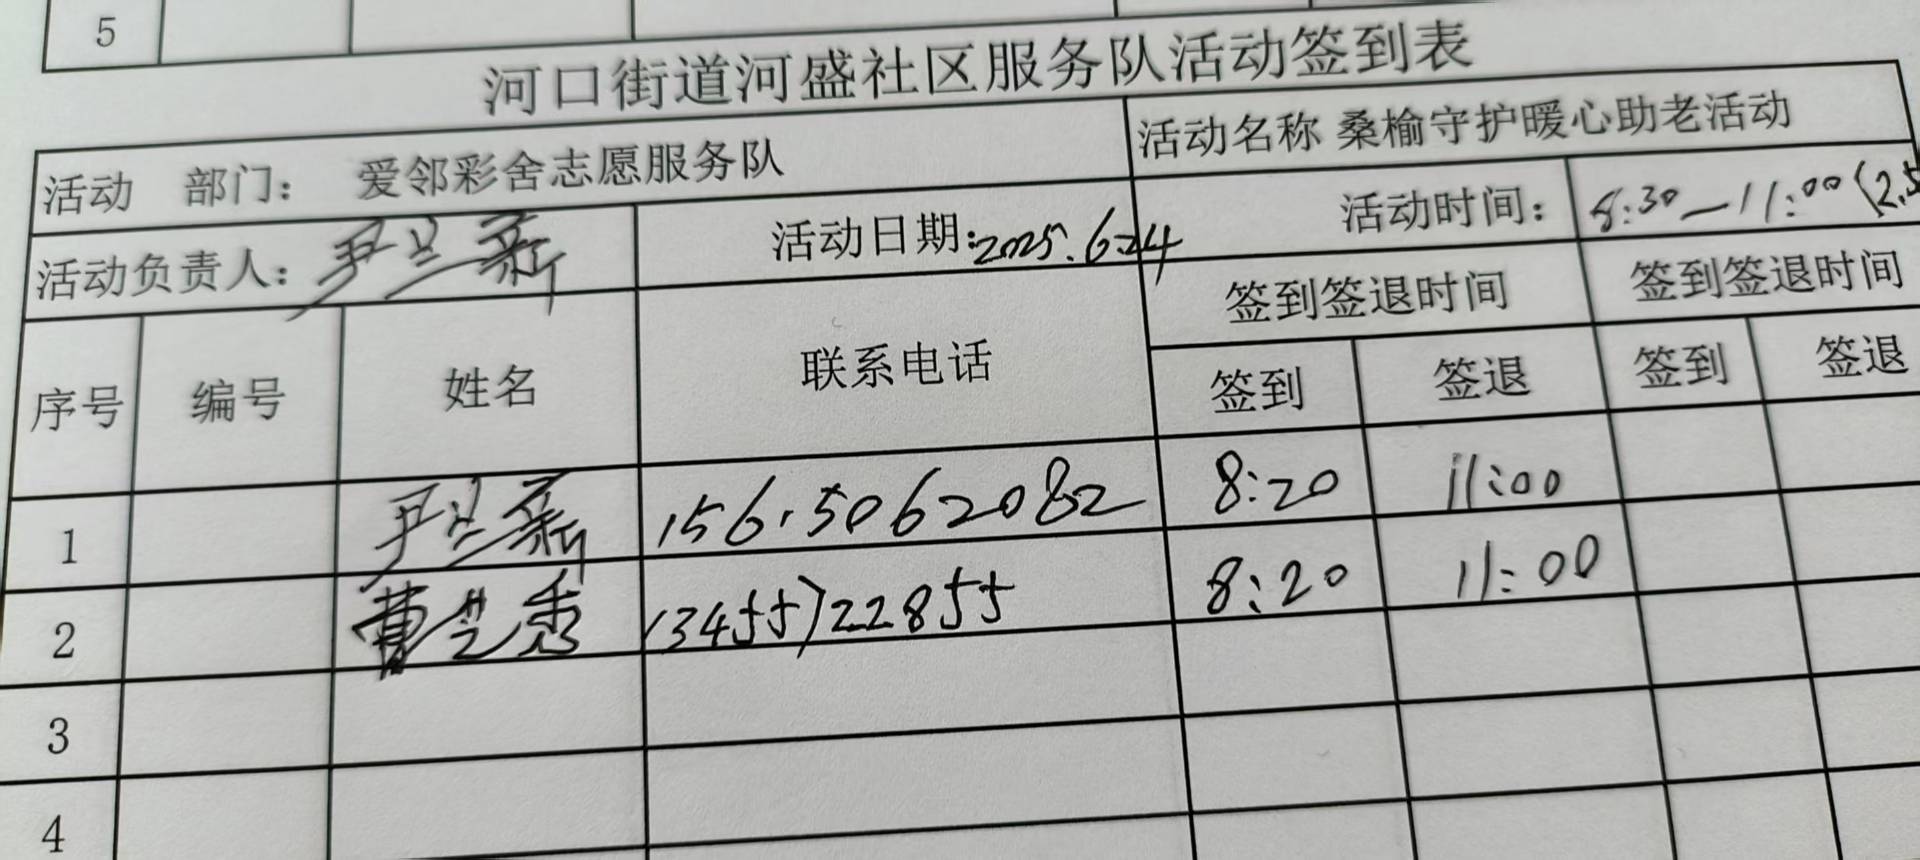 5
河口街道河盛社区服务队活动签到表
活动 部门： 爱邻彩舍志愿服务队 活动名称 桑榆守护暖心助老活动
活动负责人：尹兰新 活动日期：2025.6.24 活动时间：8:30—11:00（2.5
序号 编号 姓名 联系电话 签到签退时间 签到签退时间
签到 签退 签到 签退
1 尹兰新 156.5062082 8:20 11:00
2 曹兰秀 13455722855 8:20 11:00
3
4